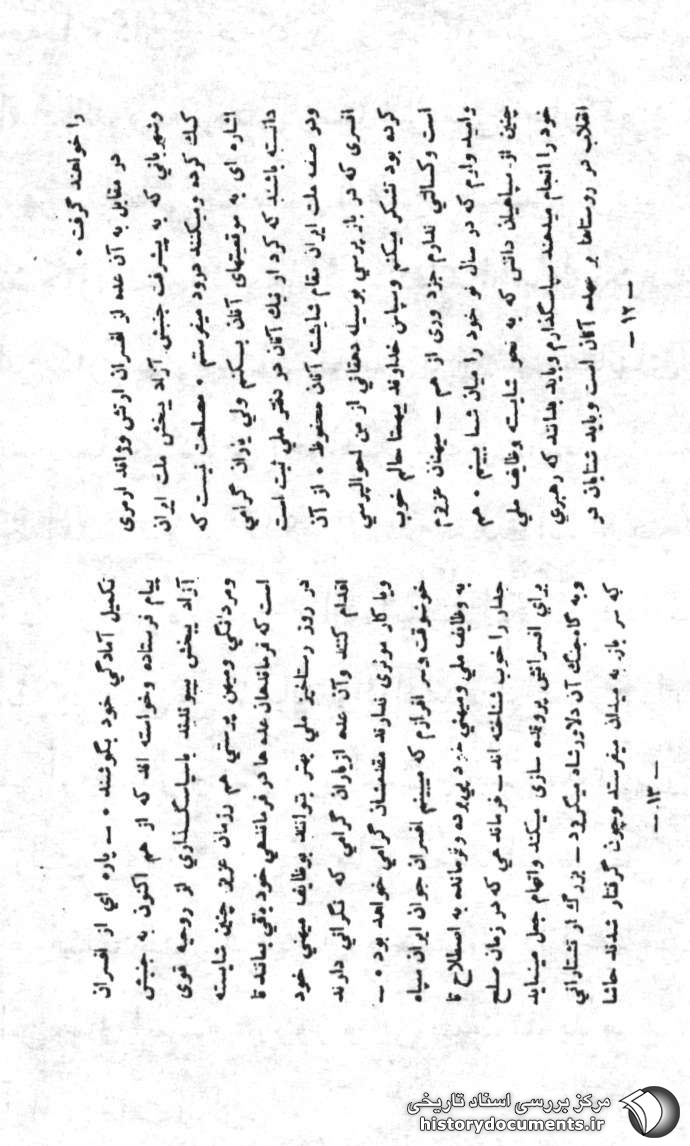 را خواهند گرفت .
در مقابل به آن عده از افسران ارتش و ژاندارمری
وشهرباني که به پیشرفت جنبش آزاد یبخش ملت ایران
کمك کرده و میکنند درود میفرستم . مصلحت نیست که
اشاره ای به موقعیتهای آنان بکنم ولي یاران گرامي
دانسته باشند که کردار نیك آنان در دفتر ملي ثبت است
ودر صف ملت ایران مقام شایسته آنان محفوظ . از آن
افسری که در باز پرسي بوسیله دهقاني از من احوالپرسي
کرده بود تشکر میکنم وسپاس خداوند یهمتا حالم خوب
است وکسالتي ندارم جزد وری از هم - میهنان عزیزم
وامید وارم که در سال نو خود را میان شما ببینم . هم
چنین از سپاهیان دانش که به نحو شایسته وظایف ملي
خود را انجام میدهند سپاسگذارم وباید بدانند که رهبری
انقلاب در روستاها بر عهده آنان است وباید شتابان در
- ۱۲ -
تکمیل آمادگي خود بکوشند . - پاره ای از افسران
پیام فرستاده وخواسته اند که از هم اکنون به جنبش
آزاد یبخش بپیوندند باسپاسگذاري از روحیه قوی
ومردانگي ومیهن پرستي هم رزمان عزیز چنین شایسته
است که فرماندهان عده ها در فرماندهي خود باقي بمانند تا
در روز رستاخیز ملي بهتر بتوانند بوظایف میهني خود
اقدام کنند وآن عده ازیاران گرامي که نگراني دارند
ویا کار موثری ندارند مقدمشان گرامي خواهد بود . -
خوشوقت وسر افرازم که میبینم افسران جوان ایران سپاه
به وظایف ملي ومیهني خود پي برده وفرمانده به اصطلاح تا
جدار را خوب شناخته اند فرماندهي که در زمان صلح
برای افسرانش پرونده سازی میکند واتهام جعل مینماید
وبه گاه جنگ آن دلاور شاه میگرود - بزرگ ارتشتاراني
که سر باز به میدان میفرستد وچون گرفتار شدند حاشا
- ۱۳ -
مرکز بررسی اسناد تاریخی
historydocuments.ir